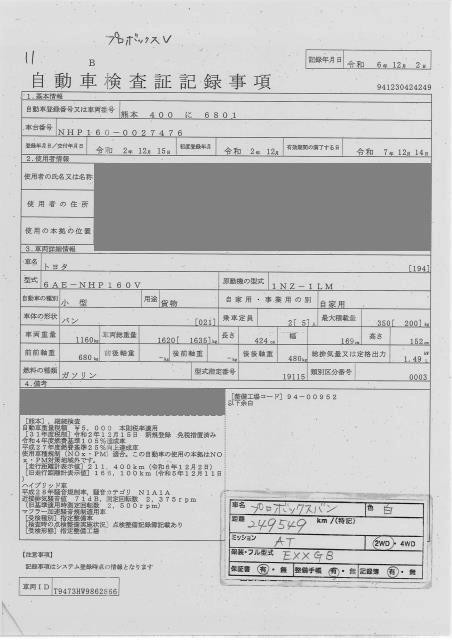 プロボックスV
11
B
記録年月日 令和 6年 12月 2日
自動車検査証記録事項
941230424249
1.基本情報
自動車登録番号又は車両番号 熊本 400 に 6801
車台番号 NHP160-0027476
登録年月日/交付年月日 令和 2年 12月 15日 初度登録年月 令和 2年 12月 有効期間の満了する日 令和 7年 12月 14日
2.使用者情報
使用者の氏名又は名称
使用者の住所
使用の本拠の位置
3.車両詳細情報
車名 トヨタ [194]
型式 6AE-NHP160V 原動機の型式 1NZ-1LM
自動車の種別 小型 用途 貨物 自家用・事業用の別 自家用
車体の形状 バン [021] 乗車定員 2[ 5]人 最大積載量 350[ 200]kg
車両重量 1160kg 車両総重量 1620[ 1635]kg 長さ 424cm 幅 169cm 高さ 152cm
前前軸重 680kg 前後軸重 -kg 後前軸重 -kg 後後軸重 480kg 総排気量又は定格出力 1.49
燃料の種類 ガソリン 型式指定番号 19115 類別区分番号 0003
4.備考
[整備工場コード] 94-00952
以下余白
[熊本], 継続検査
自動車重量税額 ¥5,000 本則税率適用
[31年度税制] 令和2年12月15日 新規登録 免税措置済み
令和4年度燃費基準105%達成車
平成27年度燃費基準25%向上達成車
使用車種規制(NOx・PM)適合。この自動車の使用の本拠はNO
x・PM対策地域外です。
[走行距離計表示値] 211,400km (令和6年12月2日)
[旧走行距離計表示値] 166,100km (令和5年12月11
日)
ハイブリッド車
平成28年騒音規制車、騒音カテゴリ N1A1A
近接排気騒音値 71dB, 測定回転数 2,375rpm
(旧基準適用時測定回転数 2,500rpm)
マフラー加速騒音規制適用車
[受検種別] 指定整備車
[検査時の点検整備実施状況] 点検整備記録簿記載あり
[受検形態] 指定整備工場
車名 プロボックスバン 色 白
距離 249549 km/(特記)
ミッション AT 2WD・4WD
架装・フル型式 EXXGB
保証書 有・無 整備手帳 有・無 記録簿 有・無
[注意事項]
記録事項はシステム登録時点の情報となります
車両ID T9473HW9862866